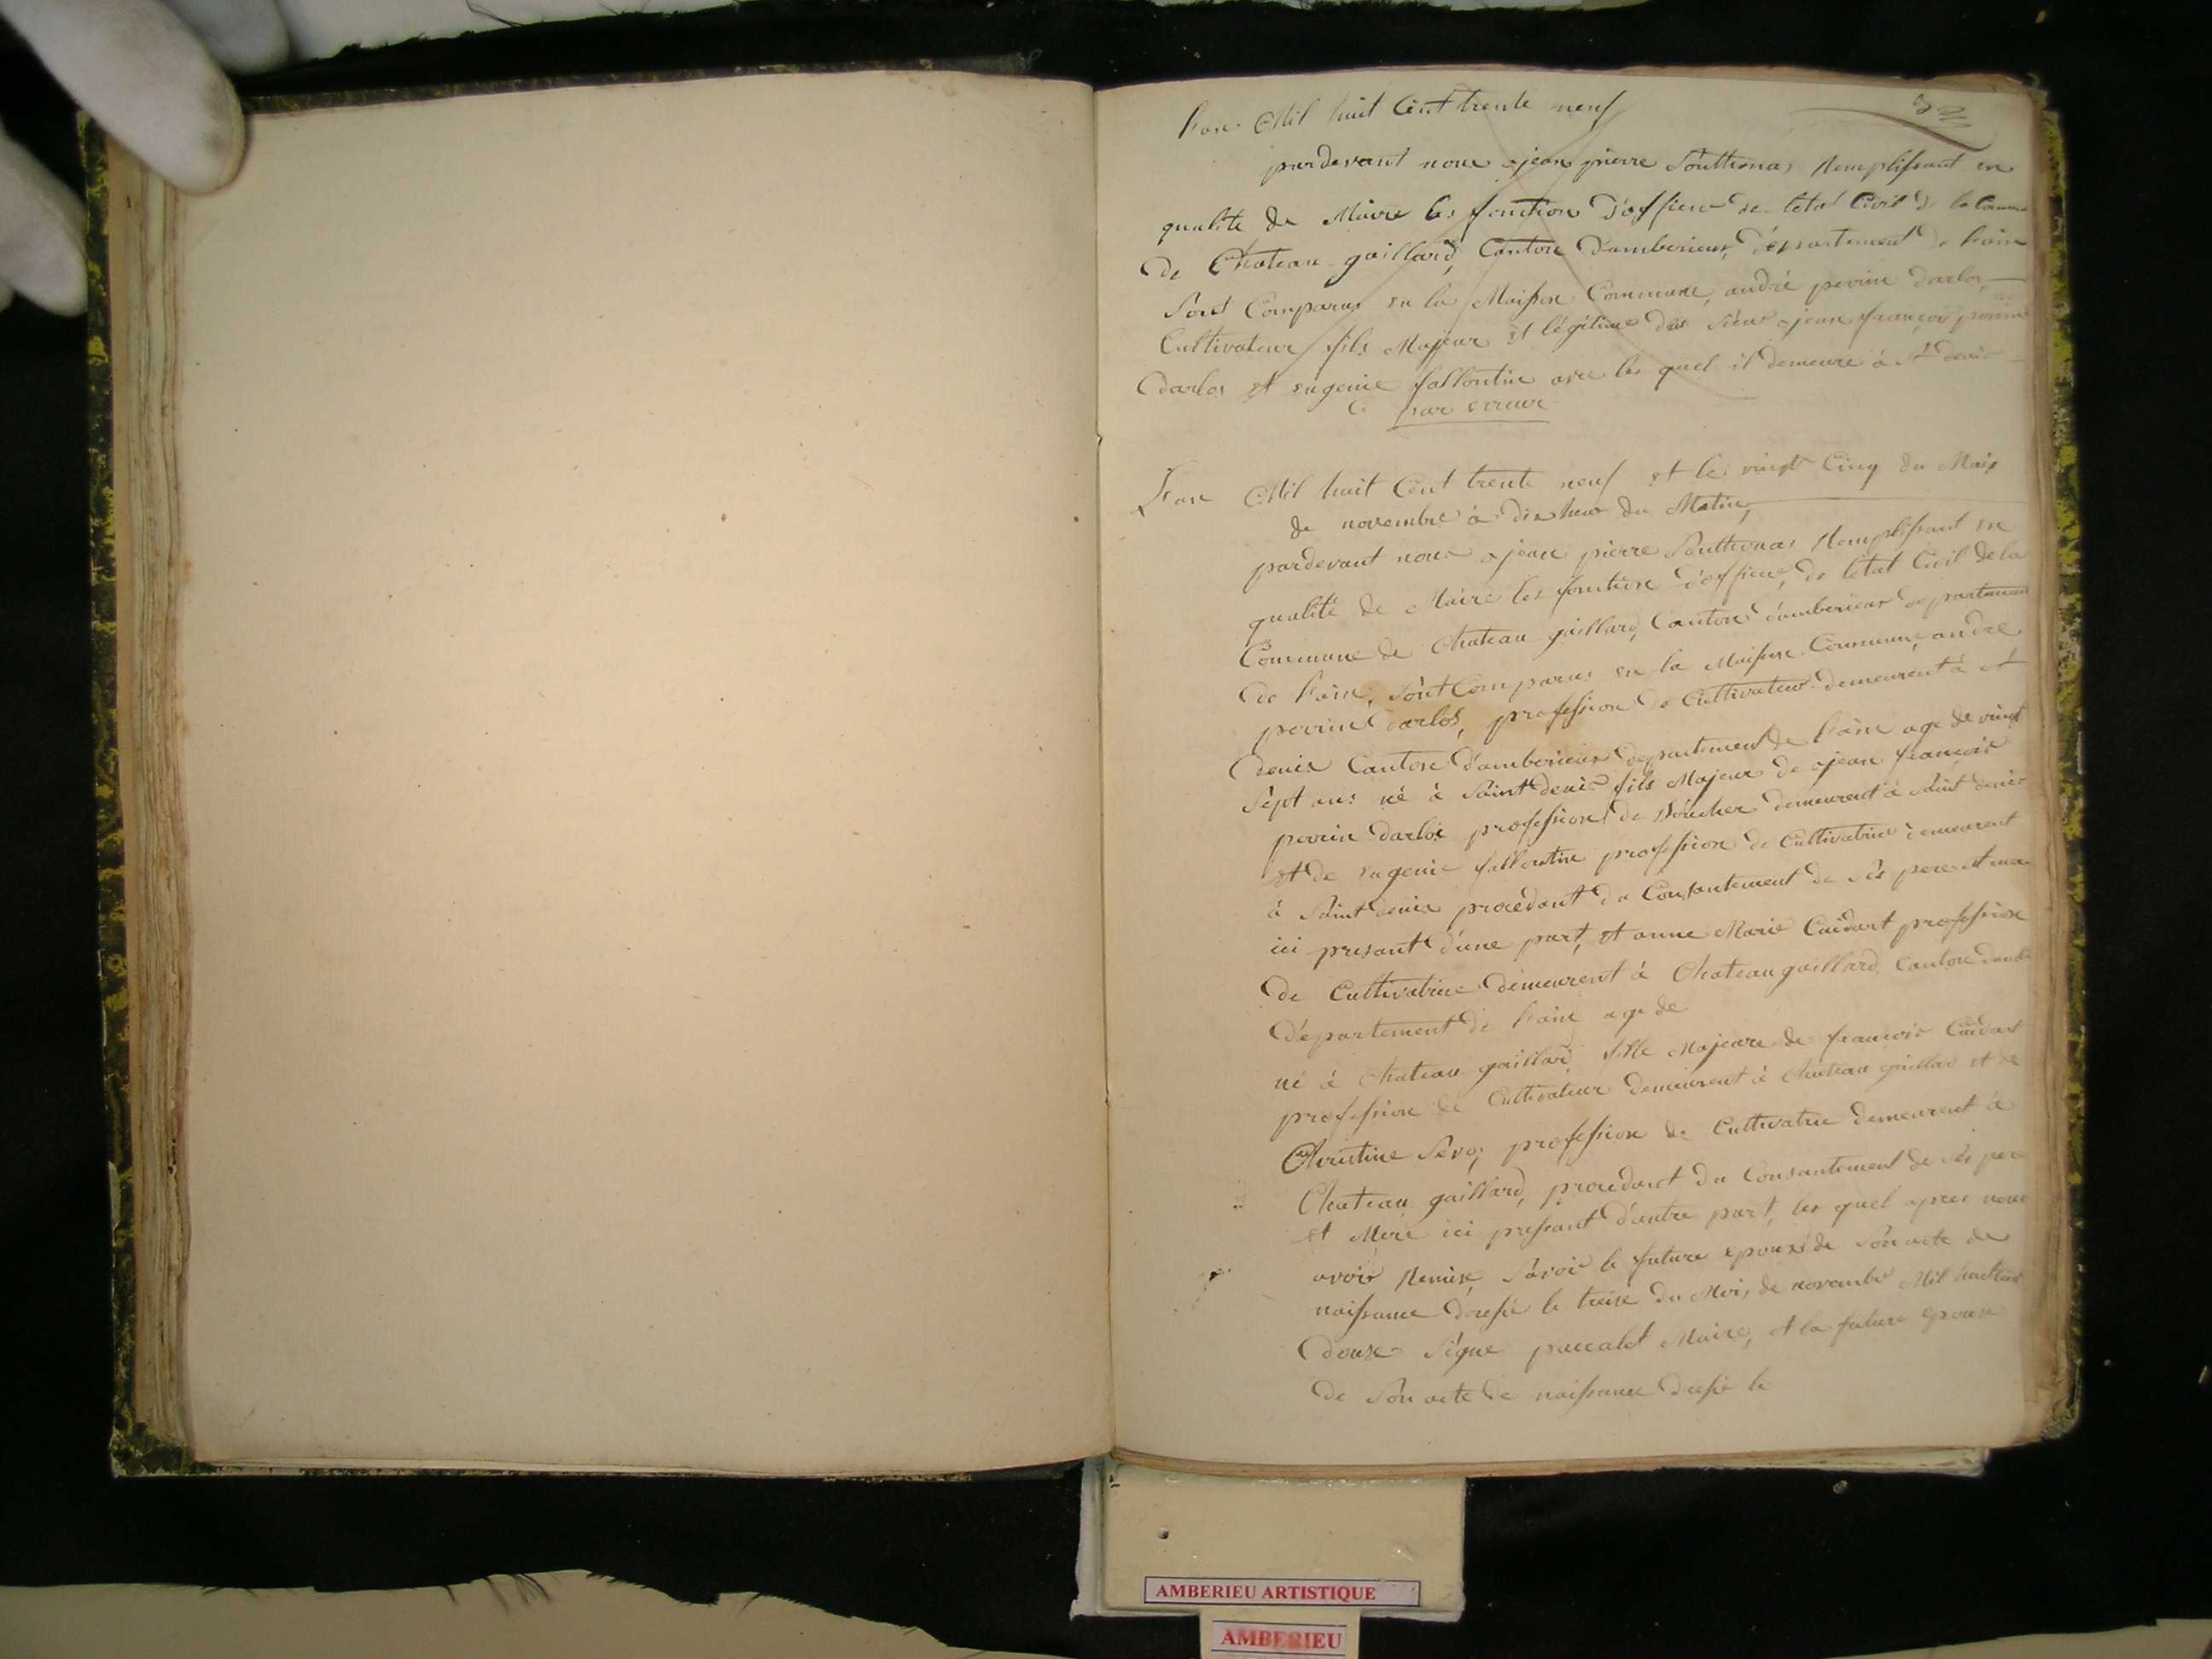 Lan Mil huit Cent trente neuf
pardevant nous jean pierre Souttonas Remplissant en
qualité de Maire les fonction d'officier de letat Civil de la Commune
de Chateau gaillard, Canton d'amberieux, département de Lain
Sont Comparus en la Maison Commune, andré perrin darlos
Cultivateur fils Majeur et légitime des Sieur jean françois perrin
darlos et eugenie fallontin avec les quel il demeure à St denis
par erreur
Lan Mil huit Cent trente neuf et le vingt Cinq du Mois
de novembre à dix heur du Matin,
pardevant nous jean pierre Souttonas Remplissant en
qualité de Maire les fonction d'officier, de letat Civil de la
Commune de Chateau gaillard, Canton d'amberieux departement
de Lain, Sont Comparus en la Maison Commune, andré
perrin darlos, profession de Cultivateur demeurent à St
denis Canton d'amberieux departement de Lain age de vingt
Sept ans né à Saint denis fils Majeur de jean françois
perrin darlos profession de Boucher demeurent à Saint denis
et de eugenie fallontin profession de Cultivatrice demeurent
à Saint denis procedant du Consentement de Ses pere et mere
ici presant d'une part, et anne Marie Cuidart profession
de Cultivatrice demeurent à Chateau gaillard, Canton damb
département de Lain age de
né à Chateau gaillard, fille Majeure de francois Cuidart
profession de Cultivateur demeurent à Chateau gaillard et de
Christine Sevoz profession de Cultivatrice demeurent à
Chateau gaillard, procedant du Consantement de Ses pere
et Mere ici presant d'autre part, les quel apres nous
avoir Remise, Savoir le future epoux de Son acte de
naissance dressé le treise du Mois de novembre Mil huit Cent
douse Signe paccalet Maire, et la future epouse
de Son acte de naissance dressé le
AMBERIEU ARTISTIQUE
AMBERIEU